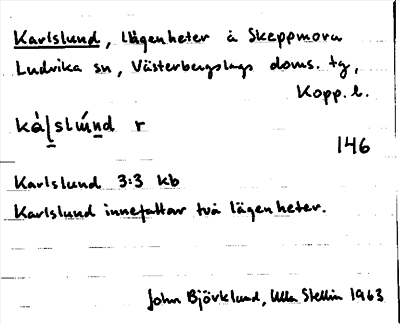 Karlslund, lägenheter å Skeppmora
Ludvika sn, Västerbergslags doms. tg,
Kopp. l.
kàl̠slún̠d r
146
Karlslund 3:3 kb
Karlslund innefattar två lägenheter.
John Björklund, Ulla Stellin 1963